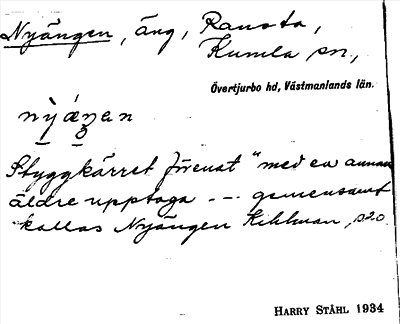 Nyängen, äng, Ransta,
Kumla sn,
Övertjurbo hd, Västmanlands län.
nỳáŋen
Styggkärret förenat "med en annan
äldre upptaga --- gemensamt
kallas Nyängen Kihlman, s20.
HARRY STÅHL 1934